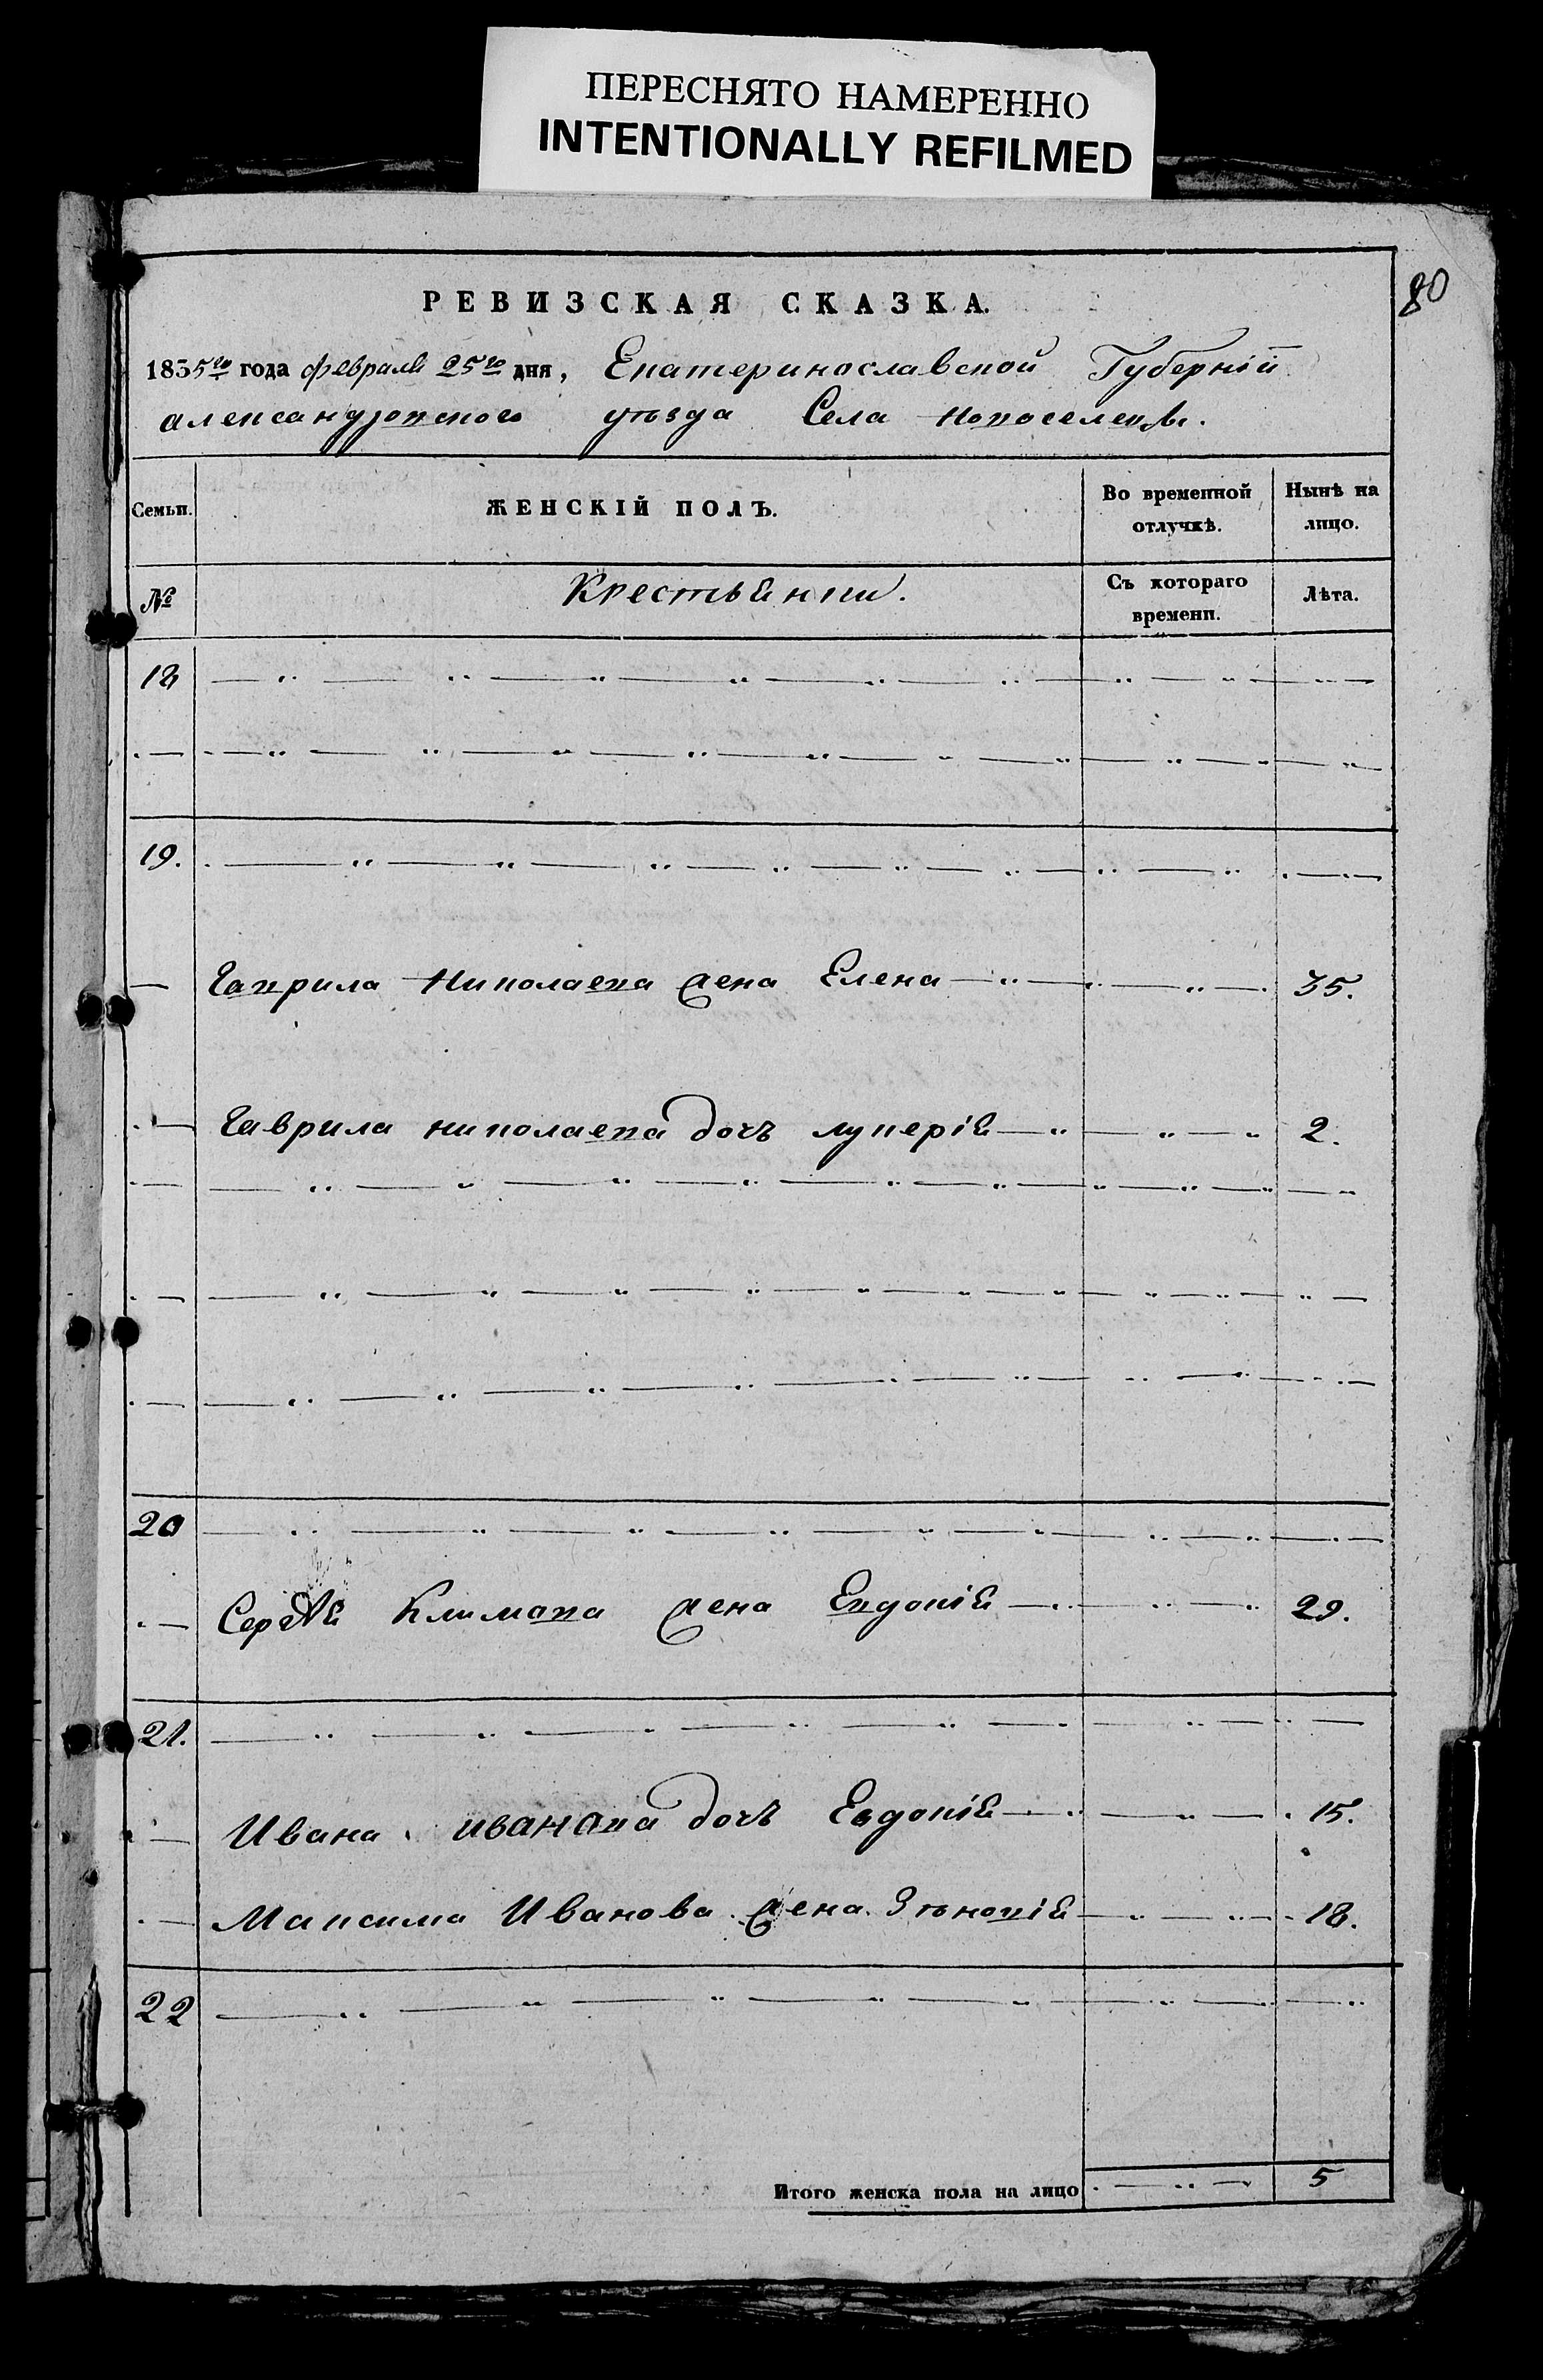 ПЕРЕСНЯТО НАМЕРЕННО
INTENTIONALLY REFILMED
80
РЕВИЗСКАЯ СКАЗКА.
1835го года февраля 25го дня, Екатеринославской Губерніи
александровского уѣзда Села новоселевки.
Семьи. ЖЕНСКІЙ ПОЛЪ. Во временной отлучкѣ. Нынѣ на лицо.
№ Крестьянки. Съ котораго времени. Лѣта.
18
19.
Гаврила Николаева жена Елена 35.
Гаврила николаева дочь лукерія 2.
20
Сергѣя Климова жена Евдокія 29.
21.
Ивана иванова дочь Евдокія 15.
Максима Иванова жена Зѣновія 18.
22
Итого женска пола на лицо 5